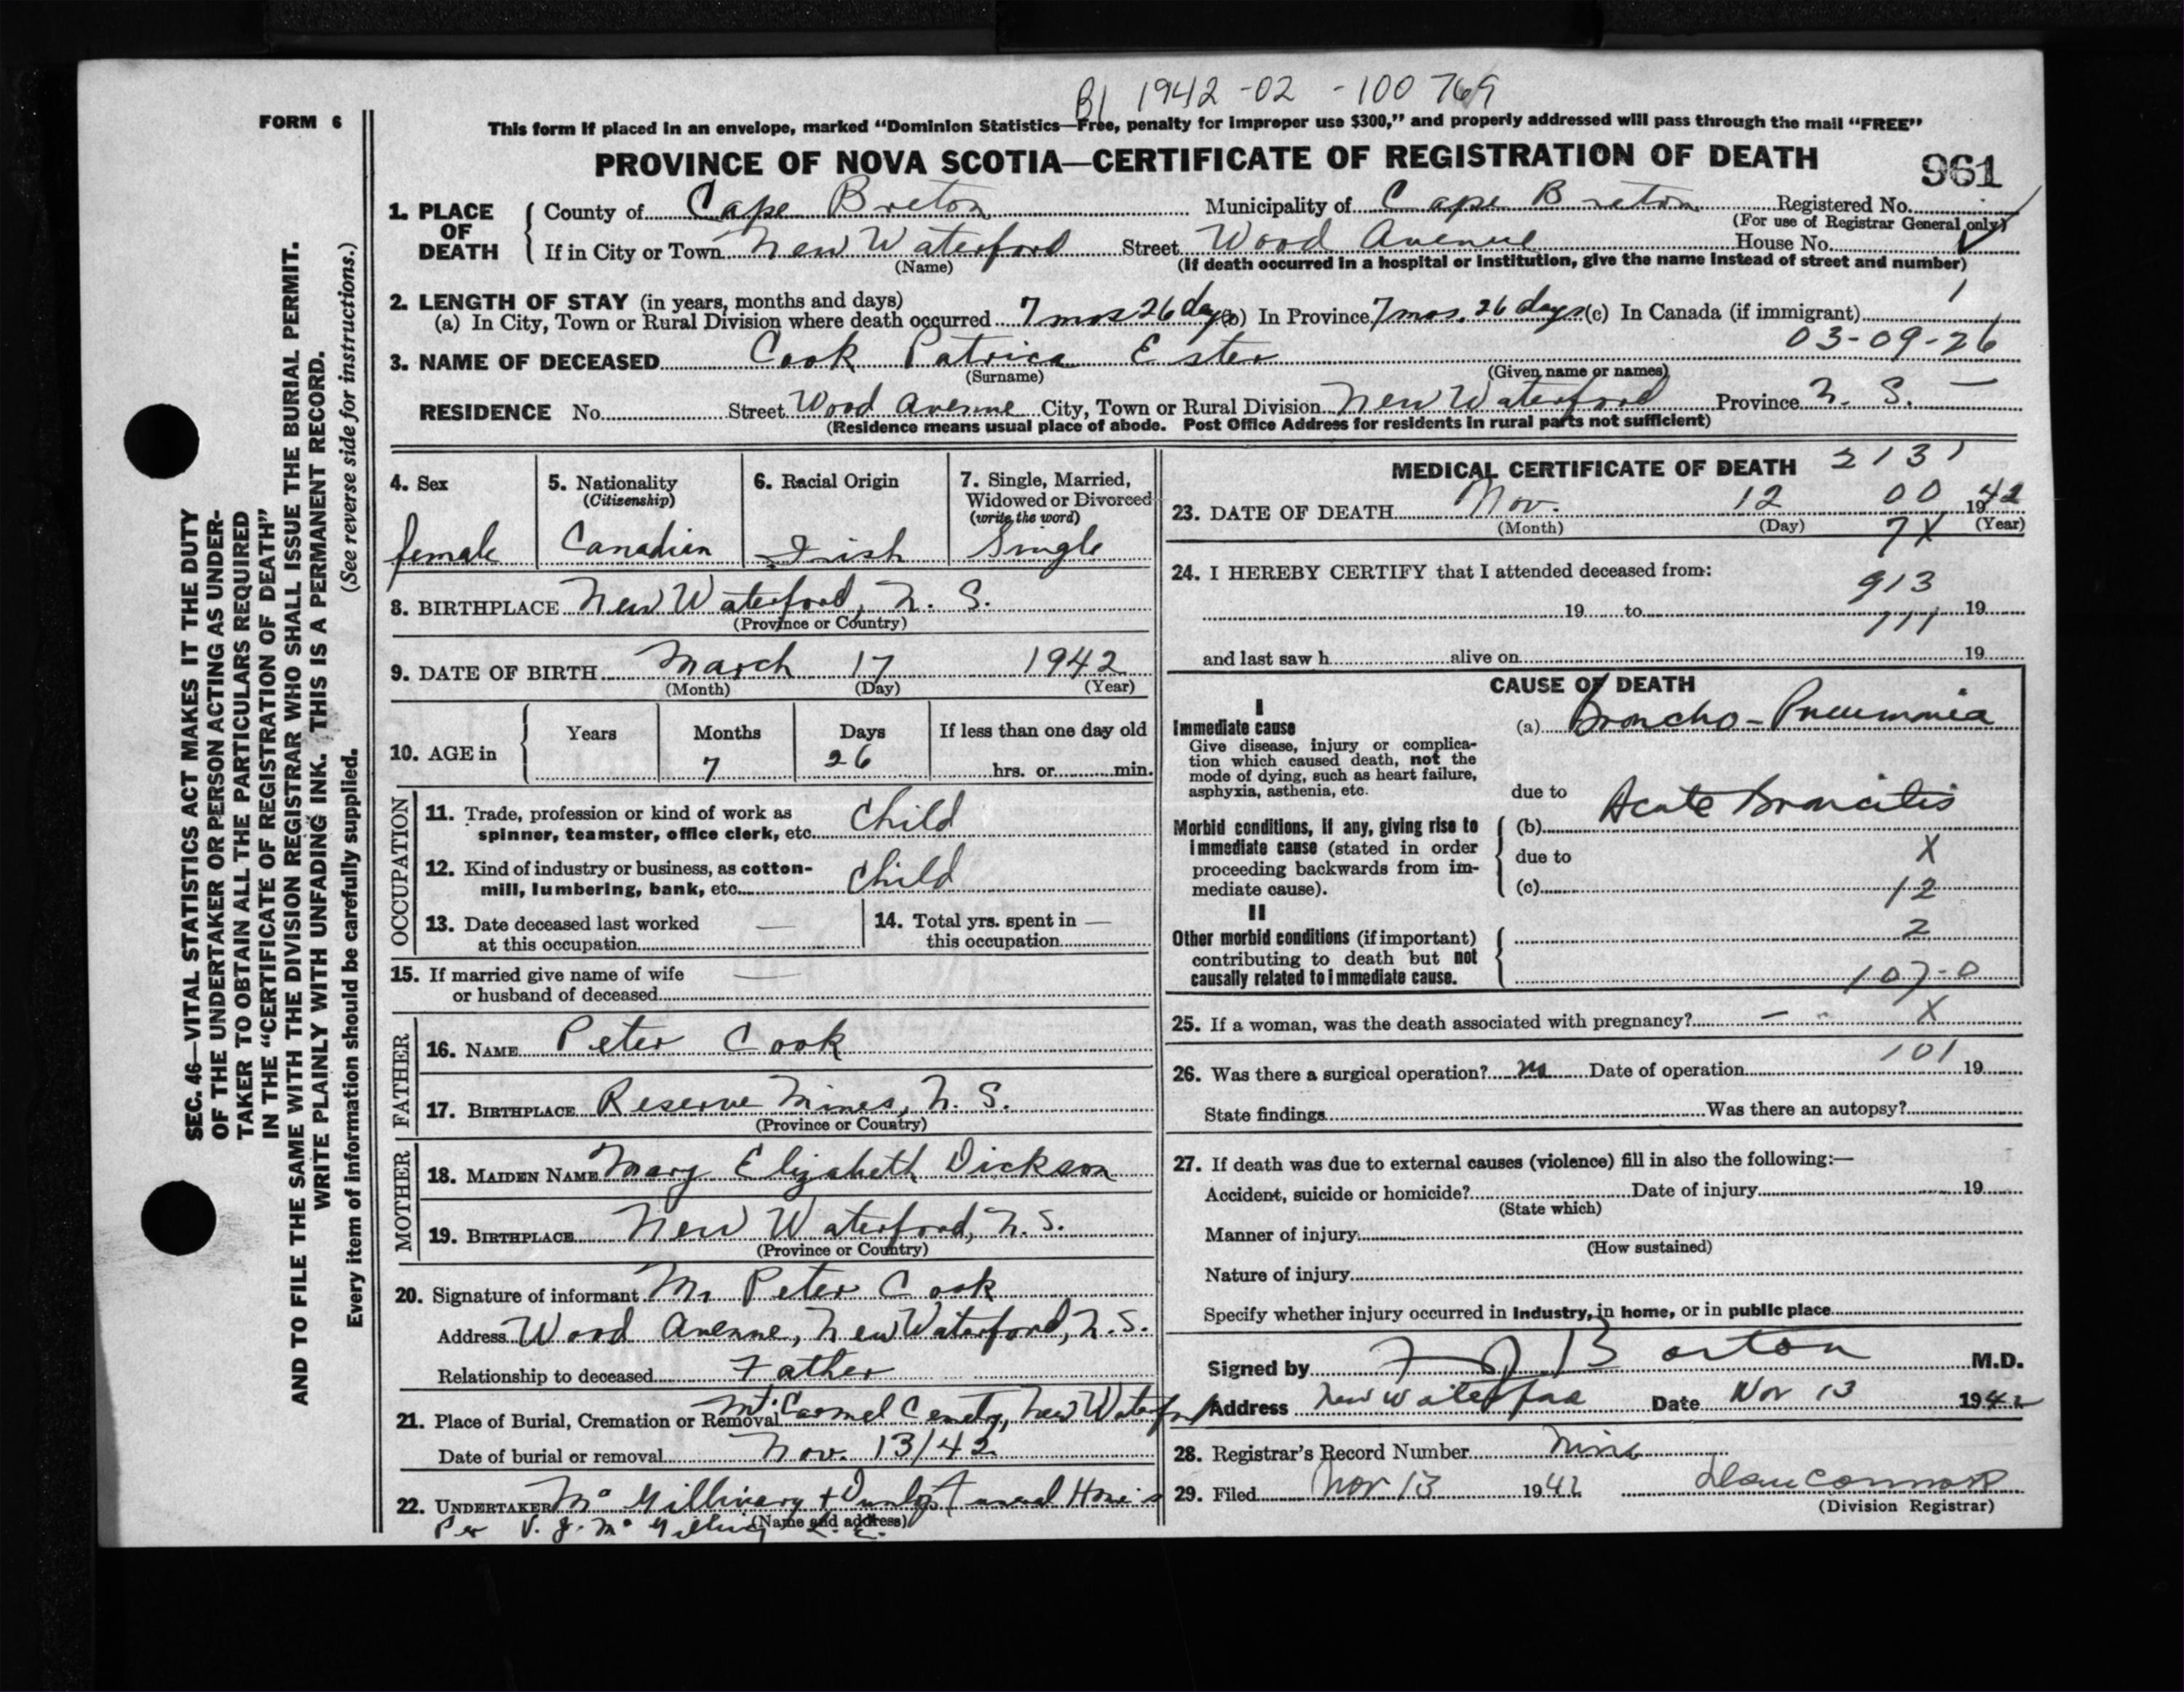 B1 1942-02-100769
FORM 6
This form if placed in an envelope, marked “Dominion Statistics—Free, penalty for improper use $300,” and properly addressed will pass through the mail “FREE”
PROVINCE OF NOVA SCOTIA—CERTIFICATE OF REGISTRATION OF DEATH
961
1. PLACE OF DEATH
County of Cape Breton Municipality of Cape Breton Registered No.
(For use of Registrar General only)
If in City or Town New Waterford Street Wood Avenue House No.
(Name) (If death occurred in a hospital or institution, give the name instead of street and number)
2. LENGTH OF STAY (in years, months and days)
(a) In City, Town or Rural Division where death occurred 7 mos 26 days (b) In Province 7 mos. 26 days (c) In Canada (if immigrant)
1
03-09-26
3. NAME OF DECEASED Cook Patrica Ester
(Surname) (Given name or names)
RESIDENCE No. Street Wood Avenue City, Town or Rural Division New Waterford Province N. S. —
(Residence means usual place of abode. Post Office Address for residents in rural parts not sufficient)
4. Sex
female
5. Nationality
(Citizenship)
Canadian
6. Racial Origin
Irish
7. Single, Married,
Widowed or Divorced
(write the word)
Single
8. BIRTHPLACE New Waterford, N. S.
(Province or Country)
9. DATE OF BIRTH March 17 1942
(Month) (Day) (Year)
10. AGE in
Years Months Days If less than one day old
7 26 hrs. or min.
OCCUPATION
11. Trade, profession or kind of work as
spinner, teamster, office clerk, etc. Child
12. Kind of industry or business, as cotton-
mill, lumbering, bank, etc. Child
13. Date deceased last worked
at this occupation —
14. Total yrs. spent in —
this occupation
15. If married give name of wife
or husband of deceased —
FATHER
16. NAME Peter Cook
17. BIRTHPLACE Reserve Mines, N. S.
(Province or Country)
MOTHER
18. MAIDEN NAME Mary Elizabeth Dickson
19. BIRTHPLACE New Waterford, N. S.
(Province or Country)
20. Signature of informant Mr Peter Cook
Address Wood Avenue, New Waterford, N. S.
Relationship to deceased Father
21. Place of Burial, Cremation or Removal Mt Carmel New Waterford
Date of burial or removal Nov. 13/42
22. UNDERTAKER
(Name and address)
Per V. J.
MEDICAL CERTIFICATE OF DEATH 2131
23. DATE OF DEATH Nov. 12 00 1942
(Month) (Day) 7X (Year)
24. I HEREBY CERTIFY that I attended deceased from:
913
19 to 19
111
and last saw h alive on 19
CAUSE OF DEATH
I
Immediate cause
Give disease, injury or complica-
tion which caused death, not the
mode of dying, such as heart failure,
asphyxia, asthenia, etc.
(a) Broncho-Pneumonia
due to
Morbid conditions, if any, giving rise to
immediate cause (stated in order
proceeding backwards from im-
mediate cause).
(b) Acute Broncitis
due to X
(c) 12
II
Other morbid conditions (if important)
contributing to death but not
causally related to immediate cause.
2
107-0
25. If a woman, was the death associated with pregnancy? — X
101
26. Was there a surgical operation? no Date of operation 19
State findings Was there an autopsy?
27. If death was due to external causes (violence) fill in also the following:—
Accident, suicide or homicide? Date of injury 19
(State which)
Manner of injury
(How sustained)
Nature of injury
Specify whether injury occurred in industry, in home, or in public place
Signed by M.D.
Address New Waterford Date Nov 13 1942
28. Registrar's Record Number
29. Filed Nov 13 1942
(Division Registrar)
SEC. 46—VITAL STATISTICS ACT MAKES IT THE DUTY
OF THE UNDERTAKER OR PERSON ACTING AS UNDER-
TAKER TO OBTAIN ALL THE PARTICULARS REQUIRED
IN THE “CERTIFICATE OF REGISTRATION OF DEATH”
AND TO FILE THE SAME WITH THE DIVISION REGISTRAR WHO SHALL ISSUE THE BURIAL PERMIT.
WRITE PLAINLY WITH UNFADING INK. THIS IS A PERMANENT RECORD.
Every item of information should be carefully supplied. (See reverse side for instructions.)